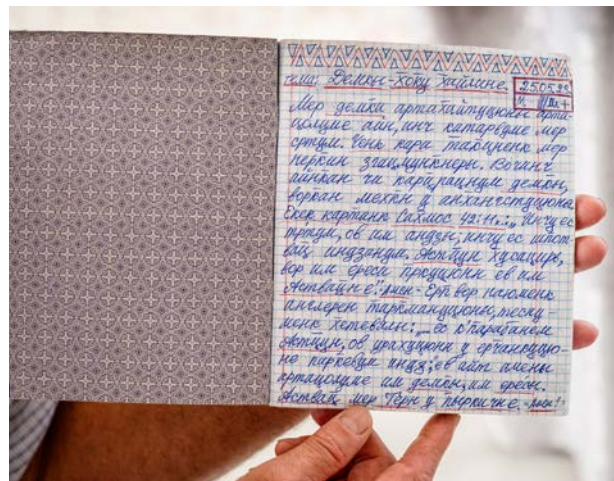 тема: Демкы-хоку хайлине. 25.05.99
Мер демкы артахайтуцюнн арта-
цолуме айн, инч катарвуме мер
сртум. Ченк кара такцненк мер
неркин згацмункнеры.
айнкан чи карцрацнум демкы,
воркан мехкн у анхангстуцюны.
Екек картанк Сахмос 42:11.:„ Инчу ес
тртум, ов им андзн, инчу ес шпот-
вац индзанум. Аствацн хусацир,
вор им ереси прцуцюнн ев им
Аствацн е:" Ерп вор наюменк
англерен таркмануцюны, теснy-
менк хетевалн:„ ес кпарабанем
Астцун, ов урахуцюн у ерчанкуцю-
не паркевум индз; ев айт амены
артацолуме им демкы, им ересы.
Аствац мер Терн у пыркичне.